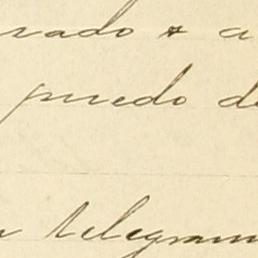 rado & a
puedo de
n telegram